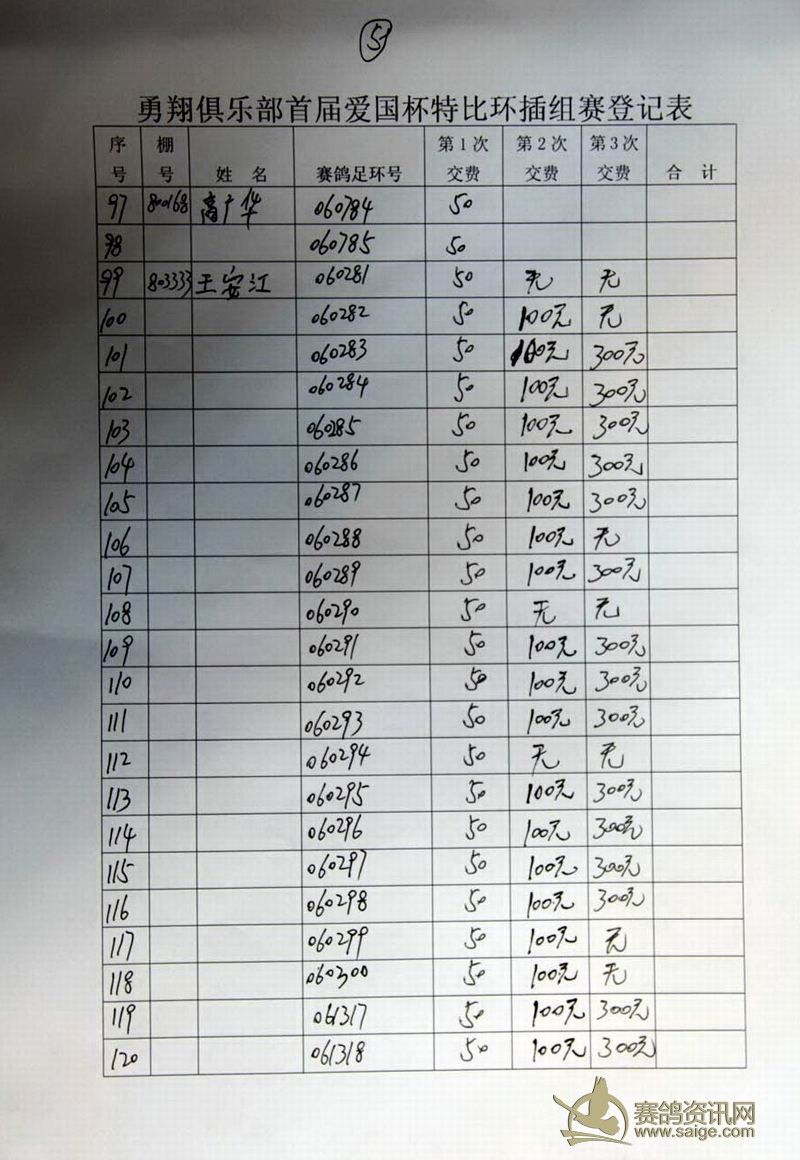 5
勇翔俱乐部首届爱国杯特比环插组赛登记表
序号 棚号 姓名 赛鸽足环号 第1次交费 第2次交费 第3次交费 合计
97 800168 高广华 060784 50
98 060785 50
99 803333 王安江 060281 50 无 无
100 060282 50 100元 无
101 060283 50 100元 300元
102 060284 50 100元 300元
103 060285 50 100元 300元
104 060286 50 100元 300元
105 060287 50 100元 300元
106 060288 50 100元 无
107 060289 50 100元 300元
108 060290 50 无 无
109 060291 50 100元 300元
110 060292 50 100元 300元
111 060293 50 100元 300元
112 060294 50 无 无
113 060295 50 100元 300元
114 060296 50 100元 300元
115 060297 50 100元 300元
116 060298 50 100元 300元
117 060299 50 100元 无
118 060300 50 100元 无
119 061317 50 100元 300元
120 061318 50 100元 300元
赛鸽资讯网
www.saige.com